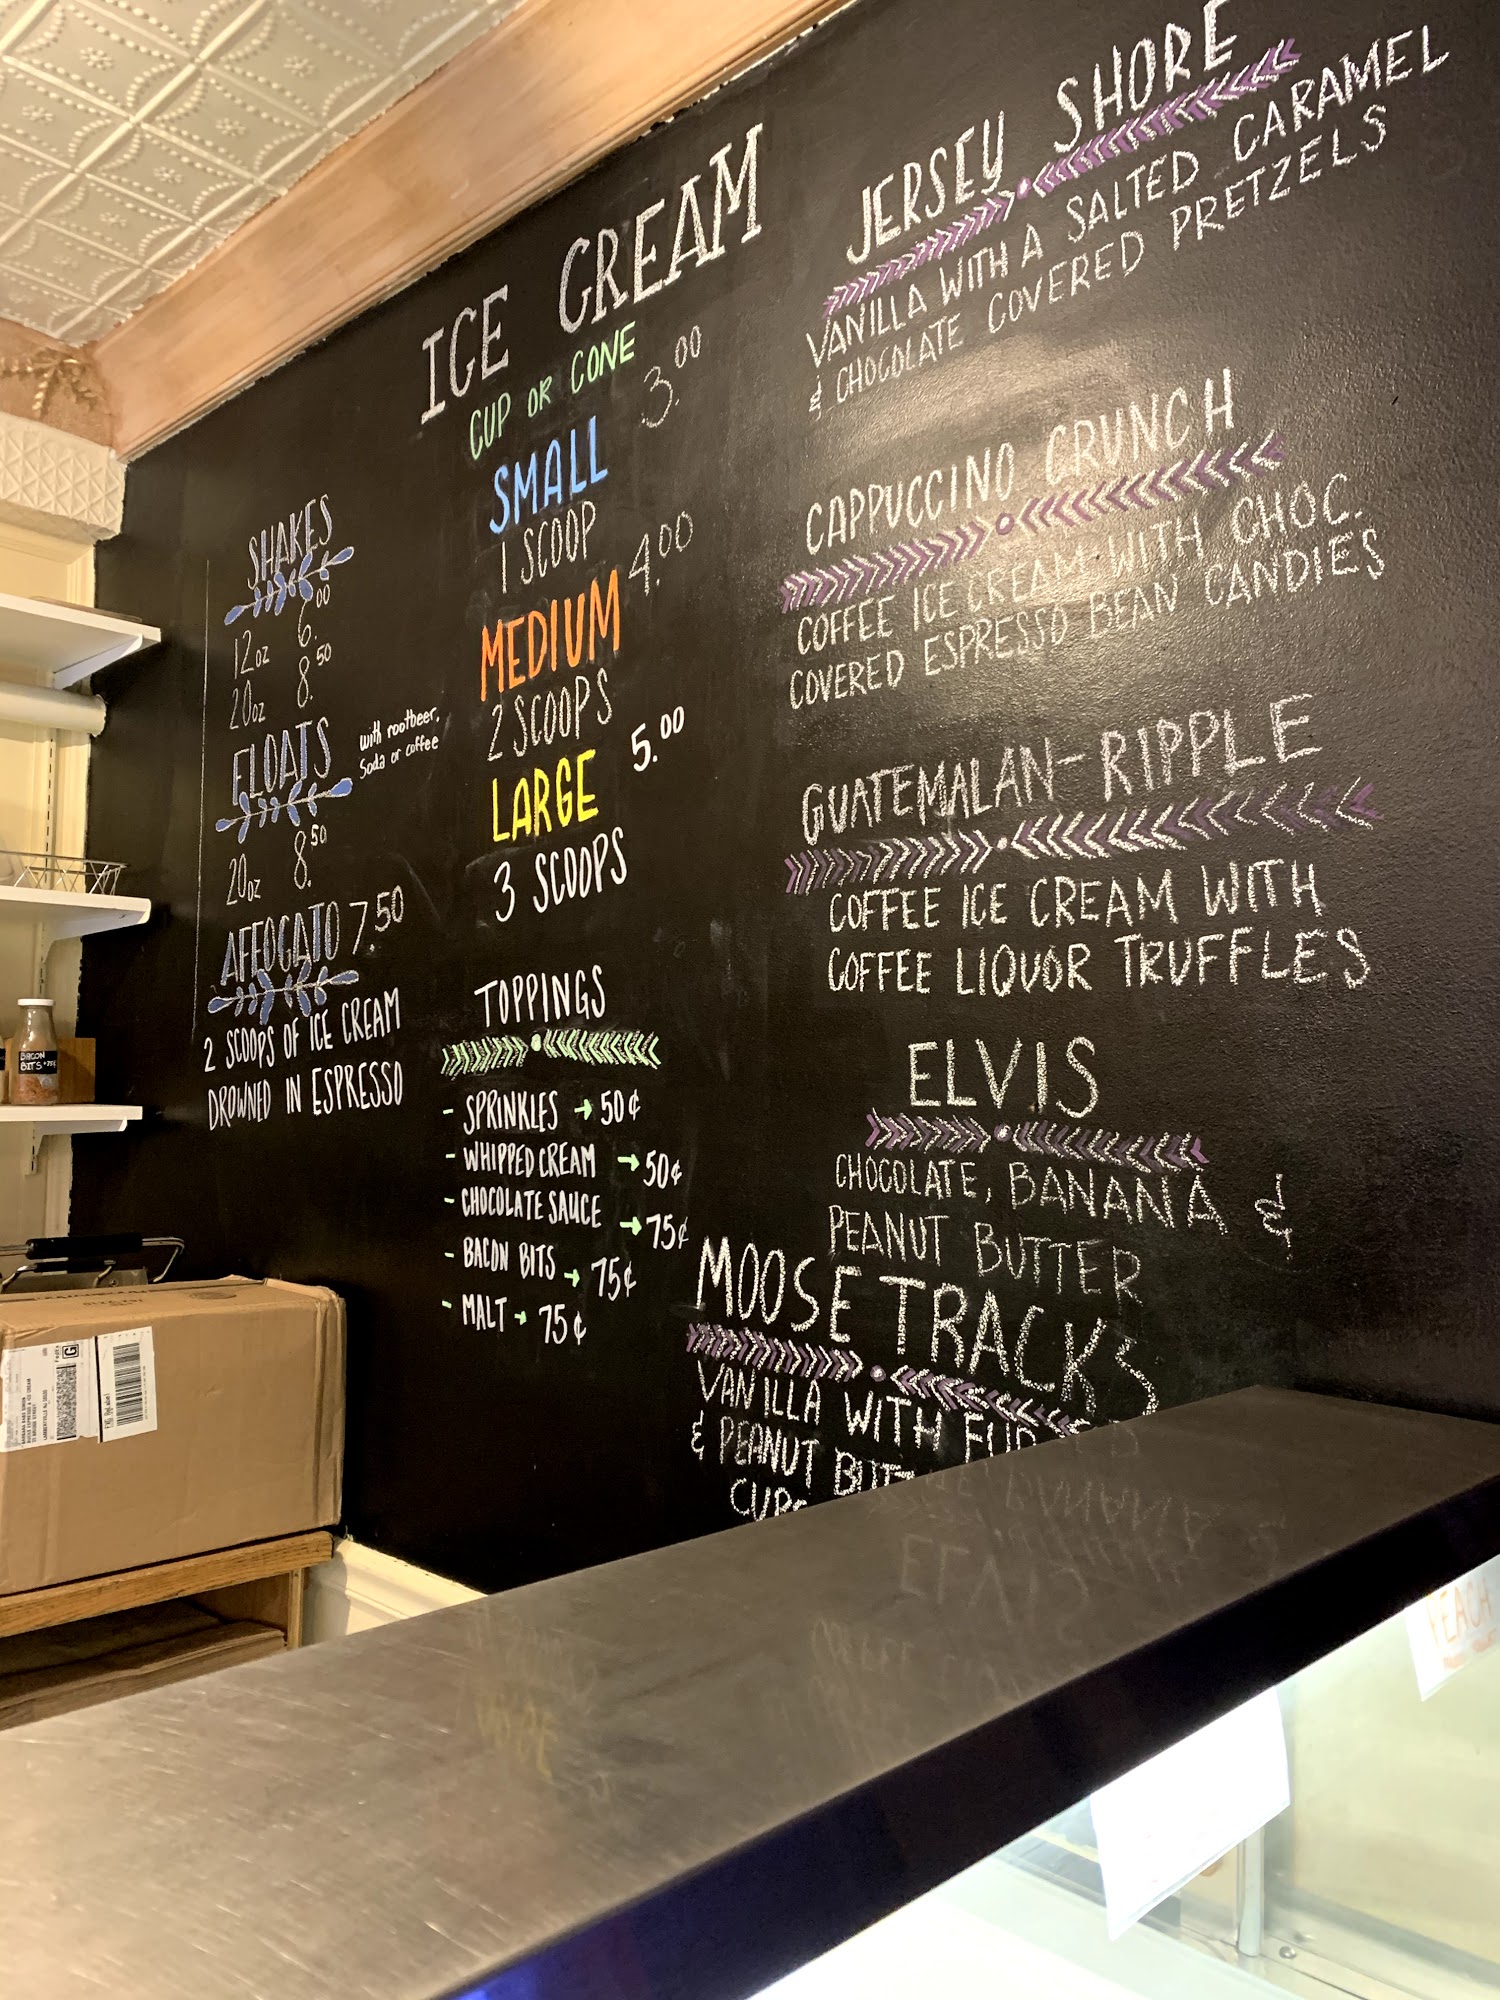 ICE CREAM
CUP OR CONE
SMALL 3.00
1 SCOOP
MEDIUM 4.00
2 SCOOPS
LARGE 5.00
3 SCOOPS
SHAKES
12oz 6.00
20oz 8.50
FLOATS with rootbeer,
Soda or coffee
20oz 8.50
AFFOGATO 7.50
2 SCOOPS OF ICE CREAM
DROWNED IN ESPRESSO
TOPPINGS
- SPRINKLES → 50¢
- WHIPPED CREAM → 50¢
- CHOCOLATE SAUCE → 75¢
- BACON BITS → 75¢
- MALT → 75¢
JERSEY SHORE
VANILLA WITH A SALTED CARAMEL
& CHOCOLATE COVERED PRETZELS
CAPPUCCINO CRUNCH
COFFEE ICE CREAM WITH CHOC.
COVERED ESPRESSO BEAN CANDIES
GUATEMALAN-RIPPLE
COFFEE ICE CREAM WITH
COFFEE LIQUOR TRUFFLES
ELVIS
CHOCOLATE, BANANA &
PEANUT BUTTER
MOOSE TRACKS
VANILLA WITH
& PEANUT
BACON
BITS
PEACH